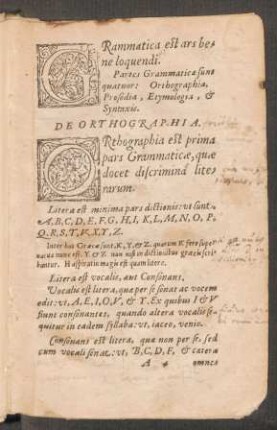 GRammatica est ars be-
ne loquendi.
Partes Grammaticæ sunt
quatuor: Orthographia,
Prosodia, Etymologia, &
Syntaxis.
DE ORTHOGRAPHIA.
ORthographia est prima
pars Grammaticæ, quæ
docet discrimina lite-
rarum.
Litera est minima pars dictionis: vt sunt
A, B, C, D, E, F, G, H, I, K, L, M, N, O, P,
Q, R, S, T, V, X, Y, Z.
Inter has Græcæ sunt, K, Y, & Z. quarum K fere super
uacua nunc est. Y & Z non nisi in dictionibus græcis scri-
buntur. H aspirationis magis est quam litera.
Litera est vocalis, aut Consonans.
Vocalis est litera, quæ per se sonat ac vocem
edit: vt, A, E, I, O, V, & Y. Ex quibus I & V
fiunt consonantes, quando altera vocalis se-
quitur in eadem syllaba: vt, iaceo, venio.
Consonans est litera, quæ non per se, sed
cum vocali sonat: vt, B, C, D, F, & cætera
A omnes